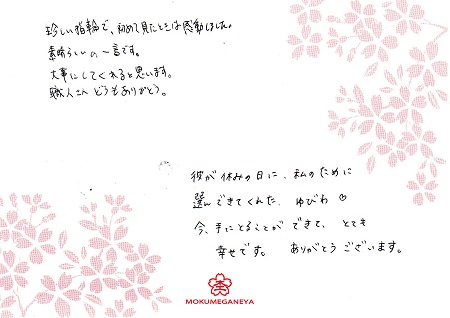 珍しい指輪で、初めて見たときは感動しました。
素晴らしいの一言です。
大事にしてくれると思います。
職人さんどうもありがとう。
彼が休みの日に、私のために
選んできてくれた、ゆびわ♡
今、手にとることができて、とても
幸せです。 ありがとうございます。
MOKUMEGANEYA